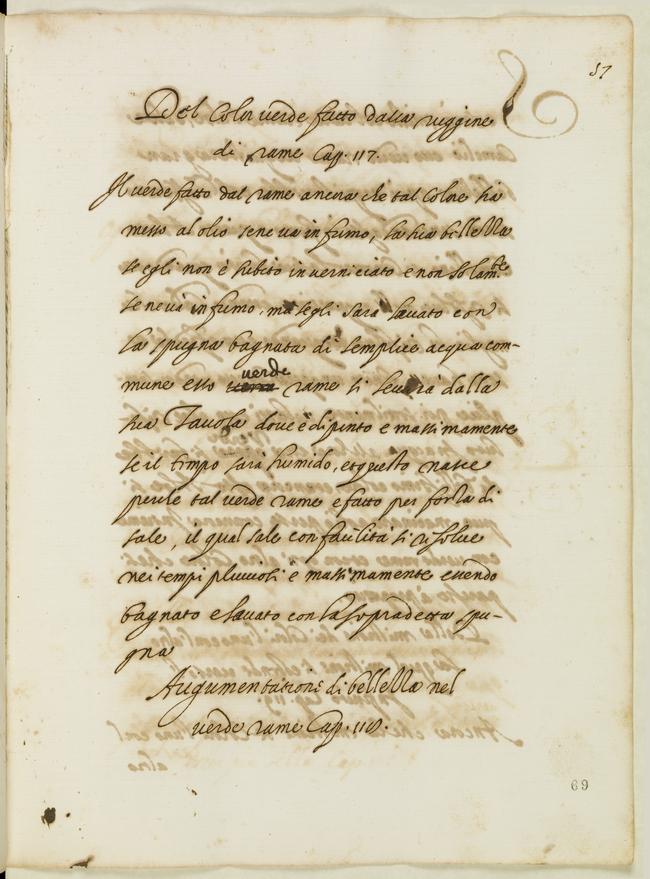 57
Del Color verde fatto dalla ruggine
di rame Cap. 117.
Il verde fatto dal rame ancora che tal Colore sia
messo al olio se ne va in fumo, la sua bellezza
se egli non è subito inverniciato e non solam.te
se ne và in fumo, ma s egli sarà lavato con
la spugna bagnata di semplice acqua com-
mune esso verde rame si leverà dalla
sua Tavola dove è dipinto e massimamente
se il tempo sarà humido, et questo nasce
perche tal verde rame e fatto per forza di
sale, il qual sale con facilità si risolve
nei tempi pluvioli e massimamente essendo
bagnato e lavato con la sopradetta spu-
gna
Augumentationi di bellezza nel
verde rame Cap. 118.
69